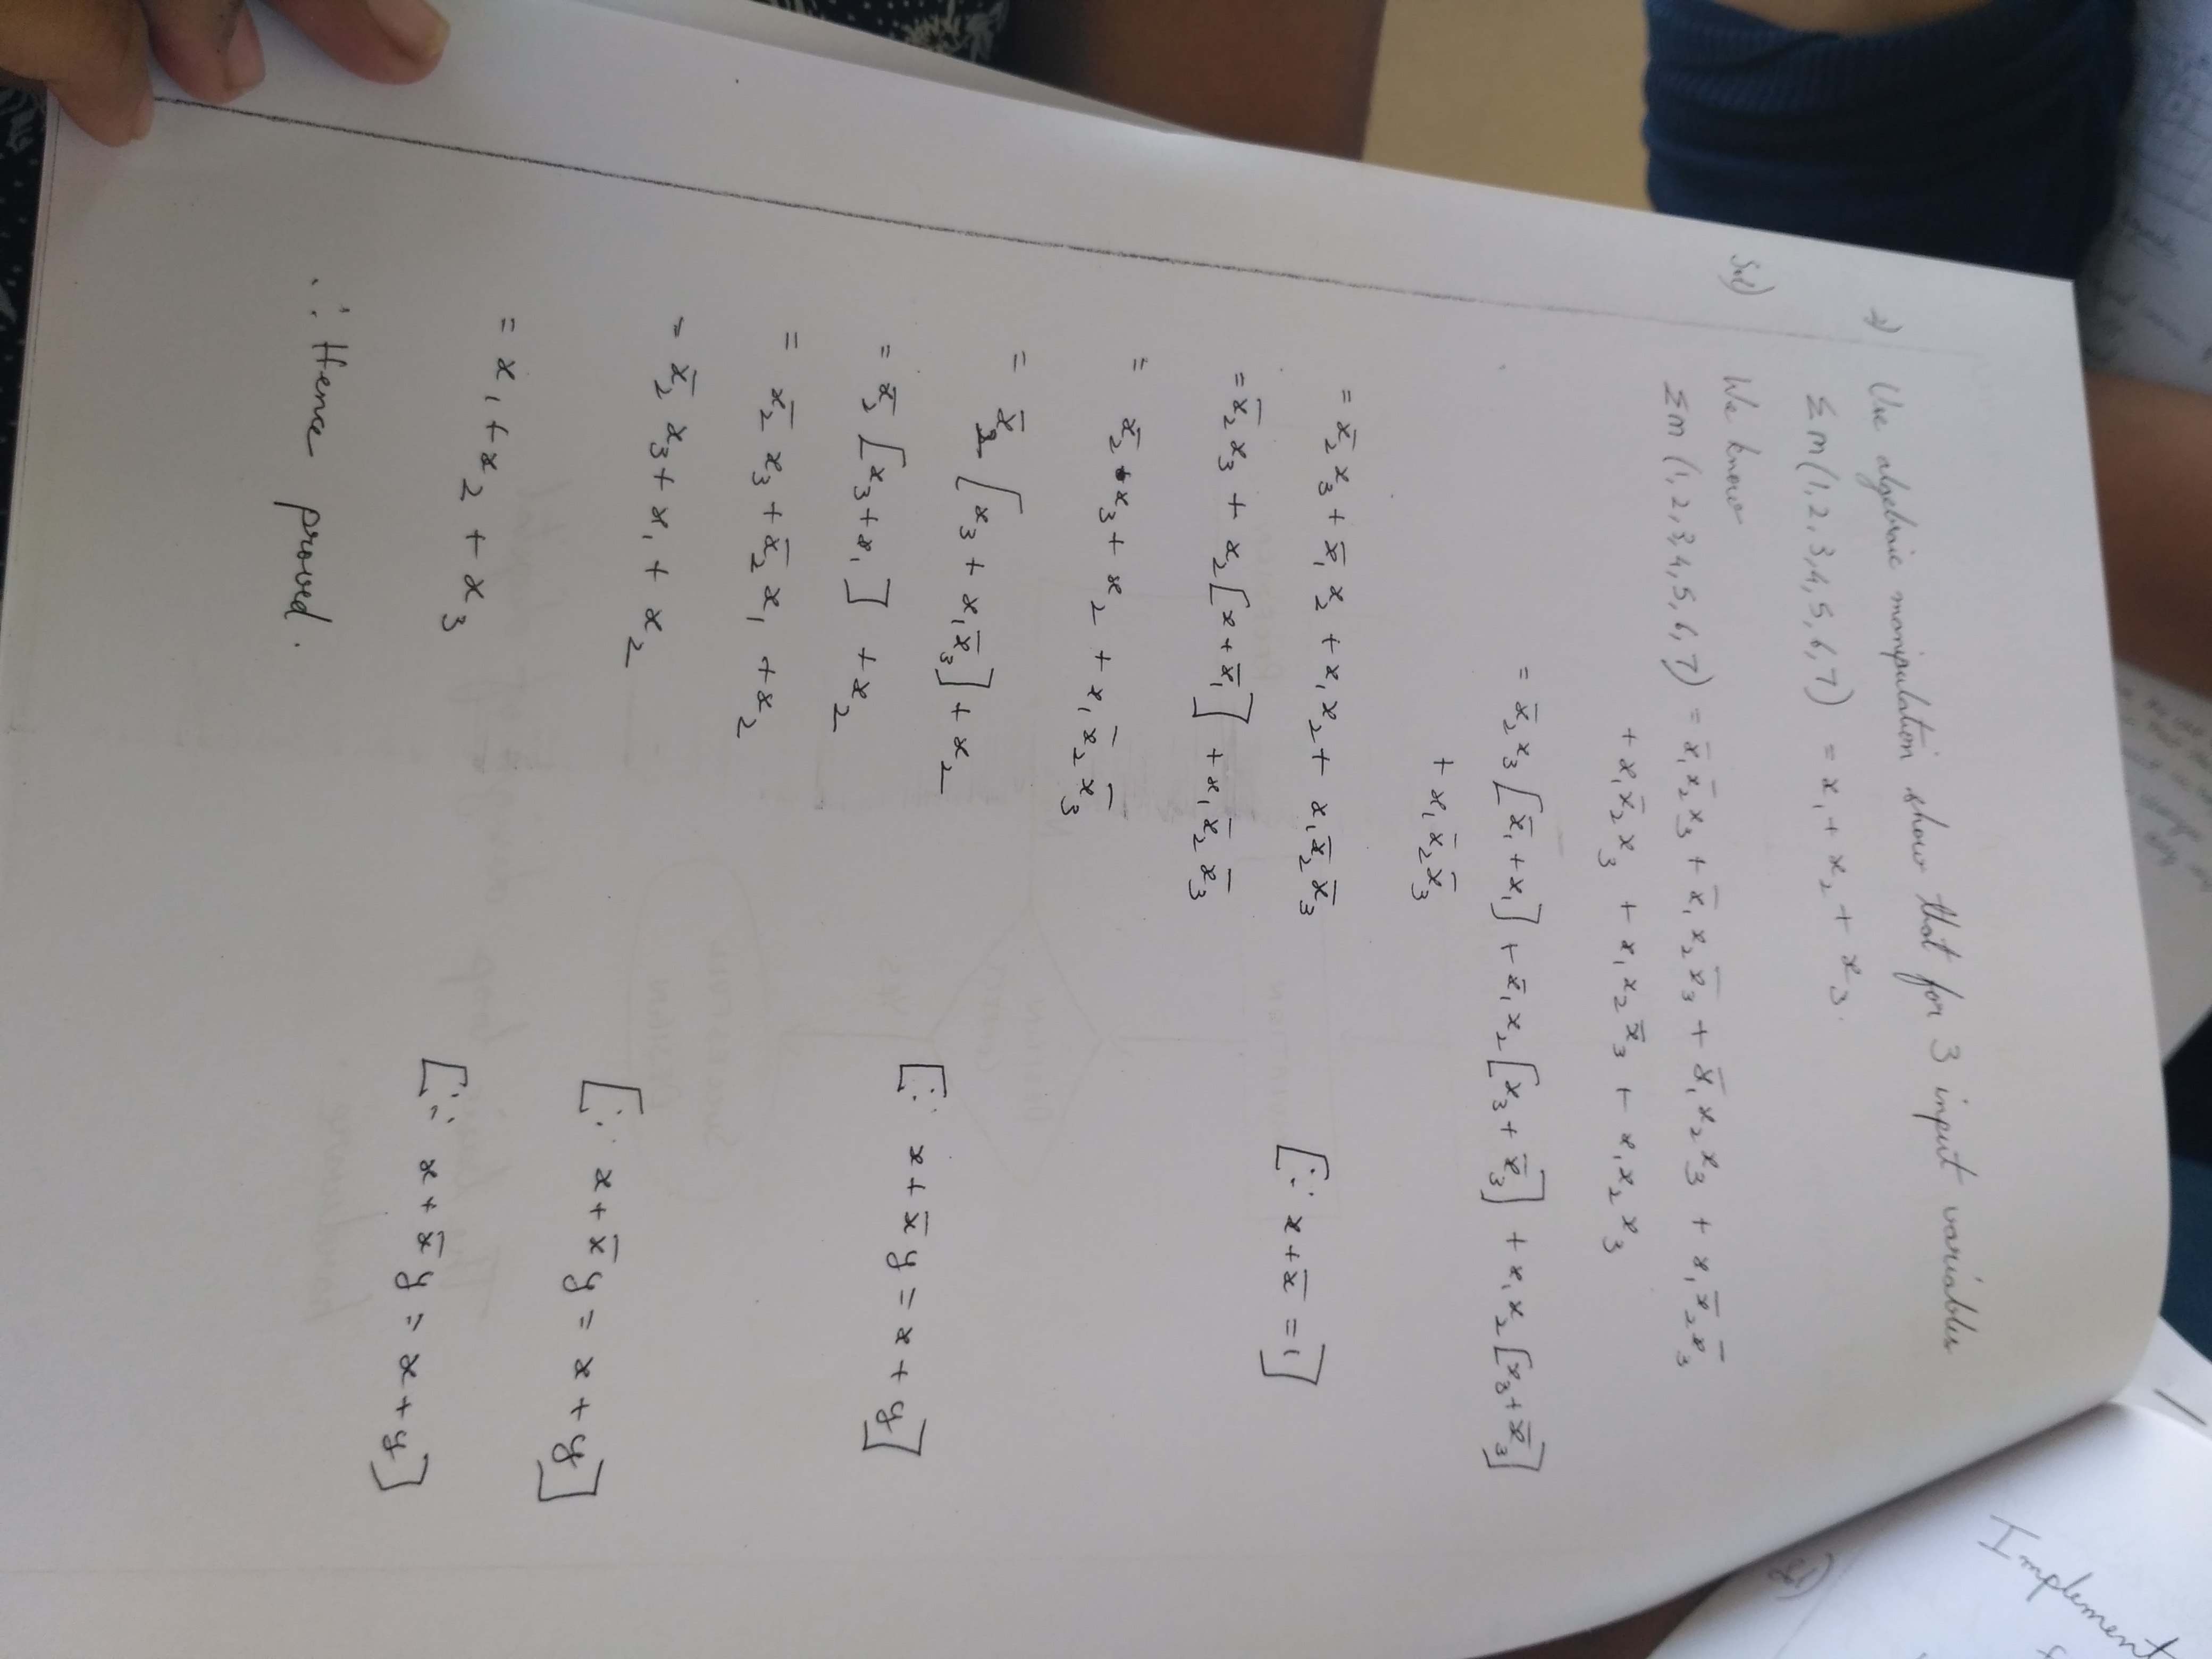 2) Use algebraic manipulation show that for 3 input variables
Σm(1,2,3,4,5,6,7) = x₁ + x₂ + x₃.
Sol) We know
Σm (1,2,3,4,5,6,7) = x̄₁x̄₂x₃ + x̄₁x₂x̄₃ + x̄₁x₂x₃ + x₁x̄₂x̄₃
+ x₁x̄₂x₃ + x₁x₂x̄₃ + x₁x₂x₃
= x̄₂x₃[x̄₁+x₁] + x̄₁x₂[x₃+x̄₃] + x₁x₂[x₃+x̄₃]
+ x₁x̄₂x̄₃
= x̄₂x₃ + x̄₁x₂ + x₁x₂ + x₁x̄₂x̄₃ [∵ x+x̄ = 1]
= x̄₂x₃ + x₂[x+x̄₁] + x₁x̄₂x̄₃
= x̄₂x₃ + x₂ + x₁x̄₂x̄₃
= x̄₂[x₃+x₁x̄₃] + x₂
= x̄₂[x₃+x₁] + x₂ [∵ x+x̄y = x+y]
= x̄₂x₃ + x̄₂x₁ + x₂
= x̄₂x₃ + x₁ + x₂ [∵ x+x̄y = x+y]
= x₁ + x₂ + x₃ [∵ x+x̄y = x+y]
∴ Hence proved.
Implement